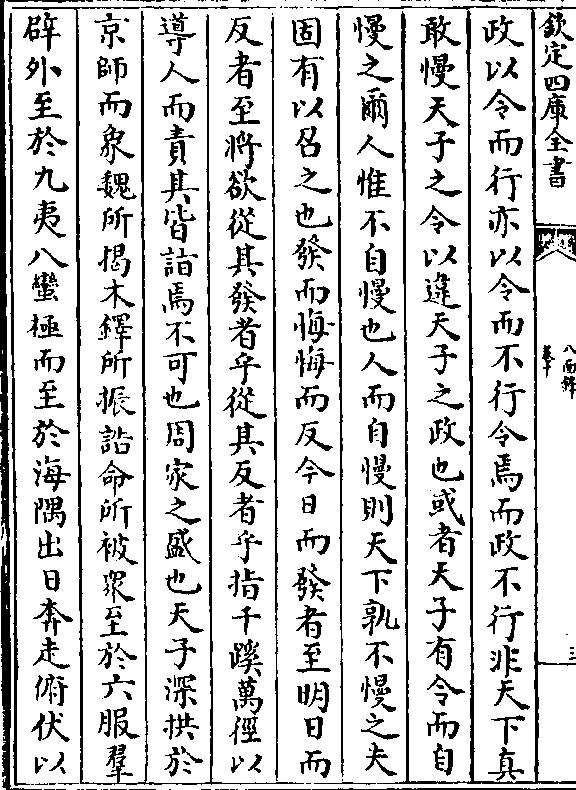 欽定四庫全書
八面鋒
卷十
三
政以令而行亦以令而不行令焉而政不行非天下真
敢慢天子之令以違天子之政也或者天子有令而自
慢之爾人惟不自慢也人而自慢則天下孰不慢之夫
固有以召之也發而悔悔而反今日而發者至明日而
反者至將欲從其發者乎從其反者乎指千蹊萬徑以
導人而責其皆詣焉不可也周家之盛也天子深拱於
京師而象魏所揭木鐸所振誥命所被衆至於六服羣
辟外至於九夷八蠻極而至於海隅出日奔走俯伏以